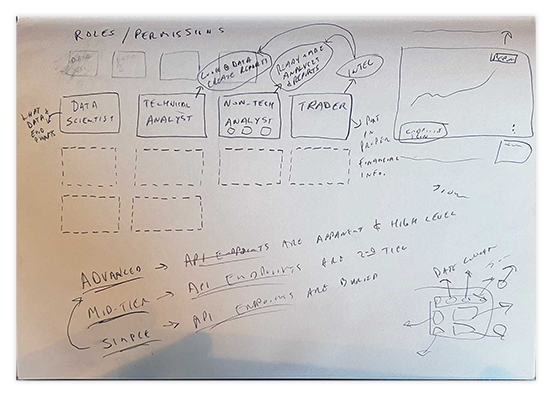 ROLES / PERMISSIONS
LOOK @ DATA
CREATE REPORTS
READY MADE
ANALYSIS
& REPORTS
INTEL
WHAT
DATA &
END
POINTS
DATA
SCIENTIST
TECHNICAL
ANALYST
NON-TECH
ANALYST
TRADER
PUT
IN
PROPER
FINANCIAL
INFO.
ADVANCED → API ENDPOINTS ARE APPARENT & HIGH LEVEL
MID-TIER → API ENDPOINTS ARE 2ND TIER
SIMPLE → API ENDPOINTS ARE BURIED